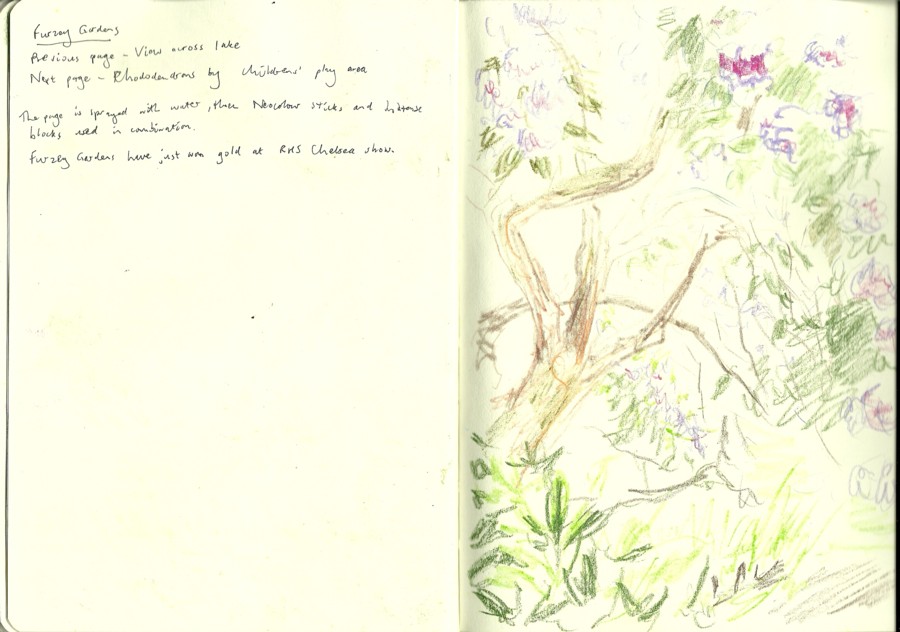 Furzey Gardens
Previous page - View across lake
Next page - Rhododendrons by childrens' play area
The page is sprayed with water, then Neocolour sticks and Inktense
blocks used in combination.
Furzey Gardens have just won gold at RHS Chelsea show.